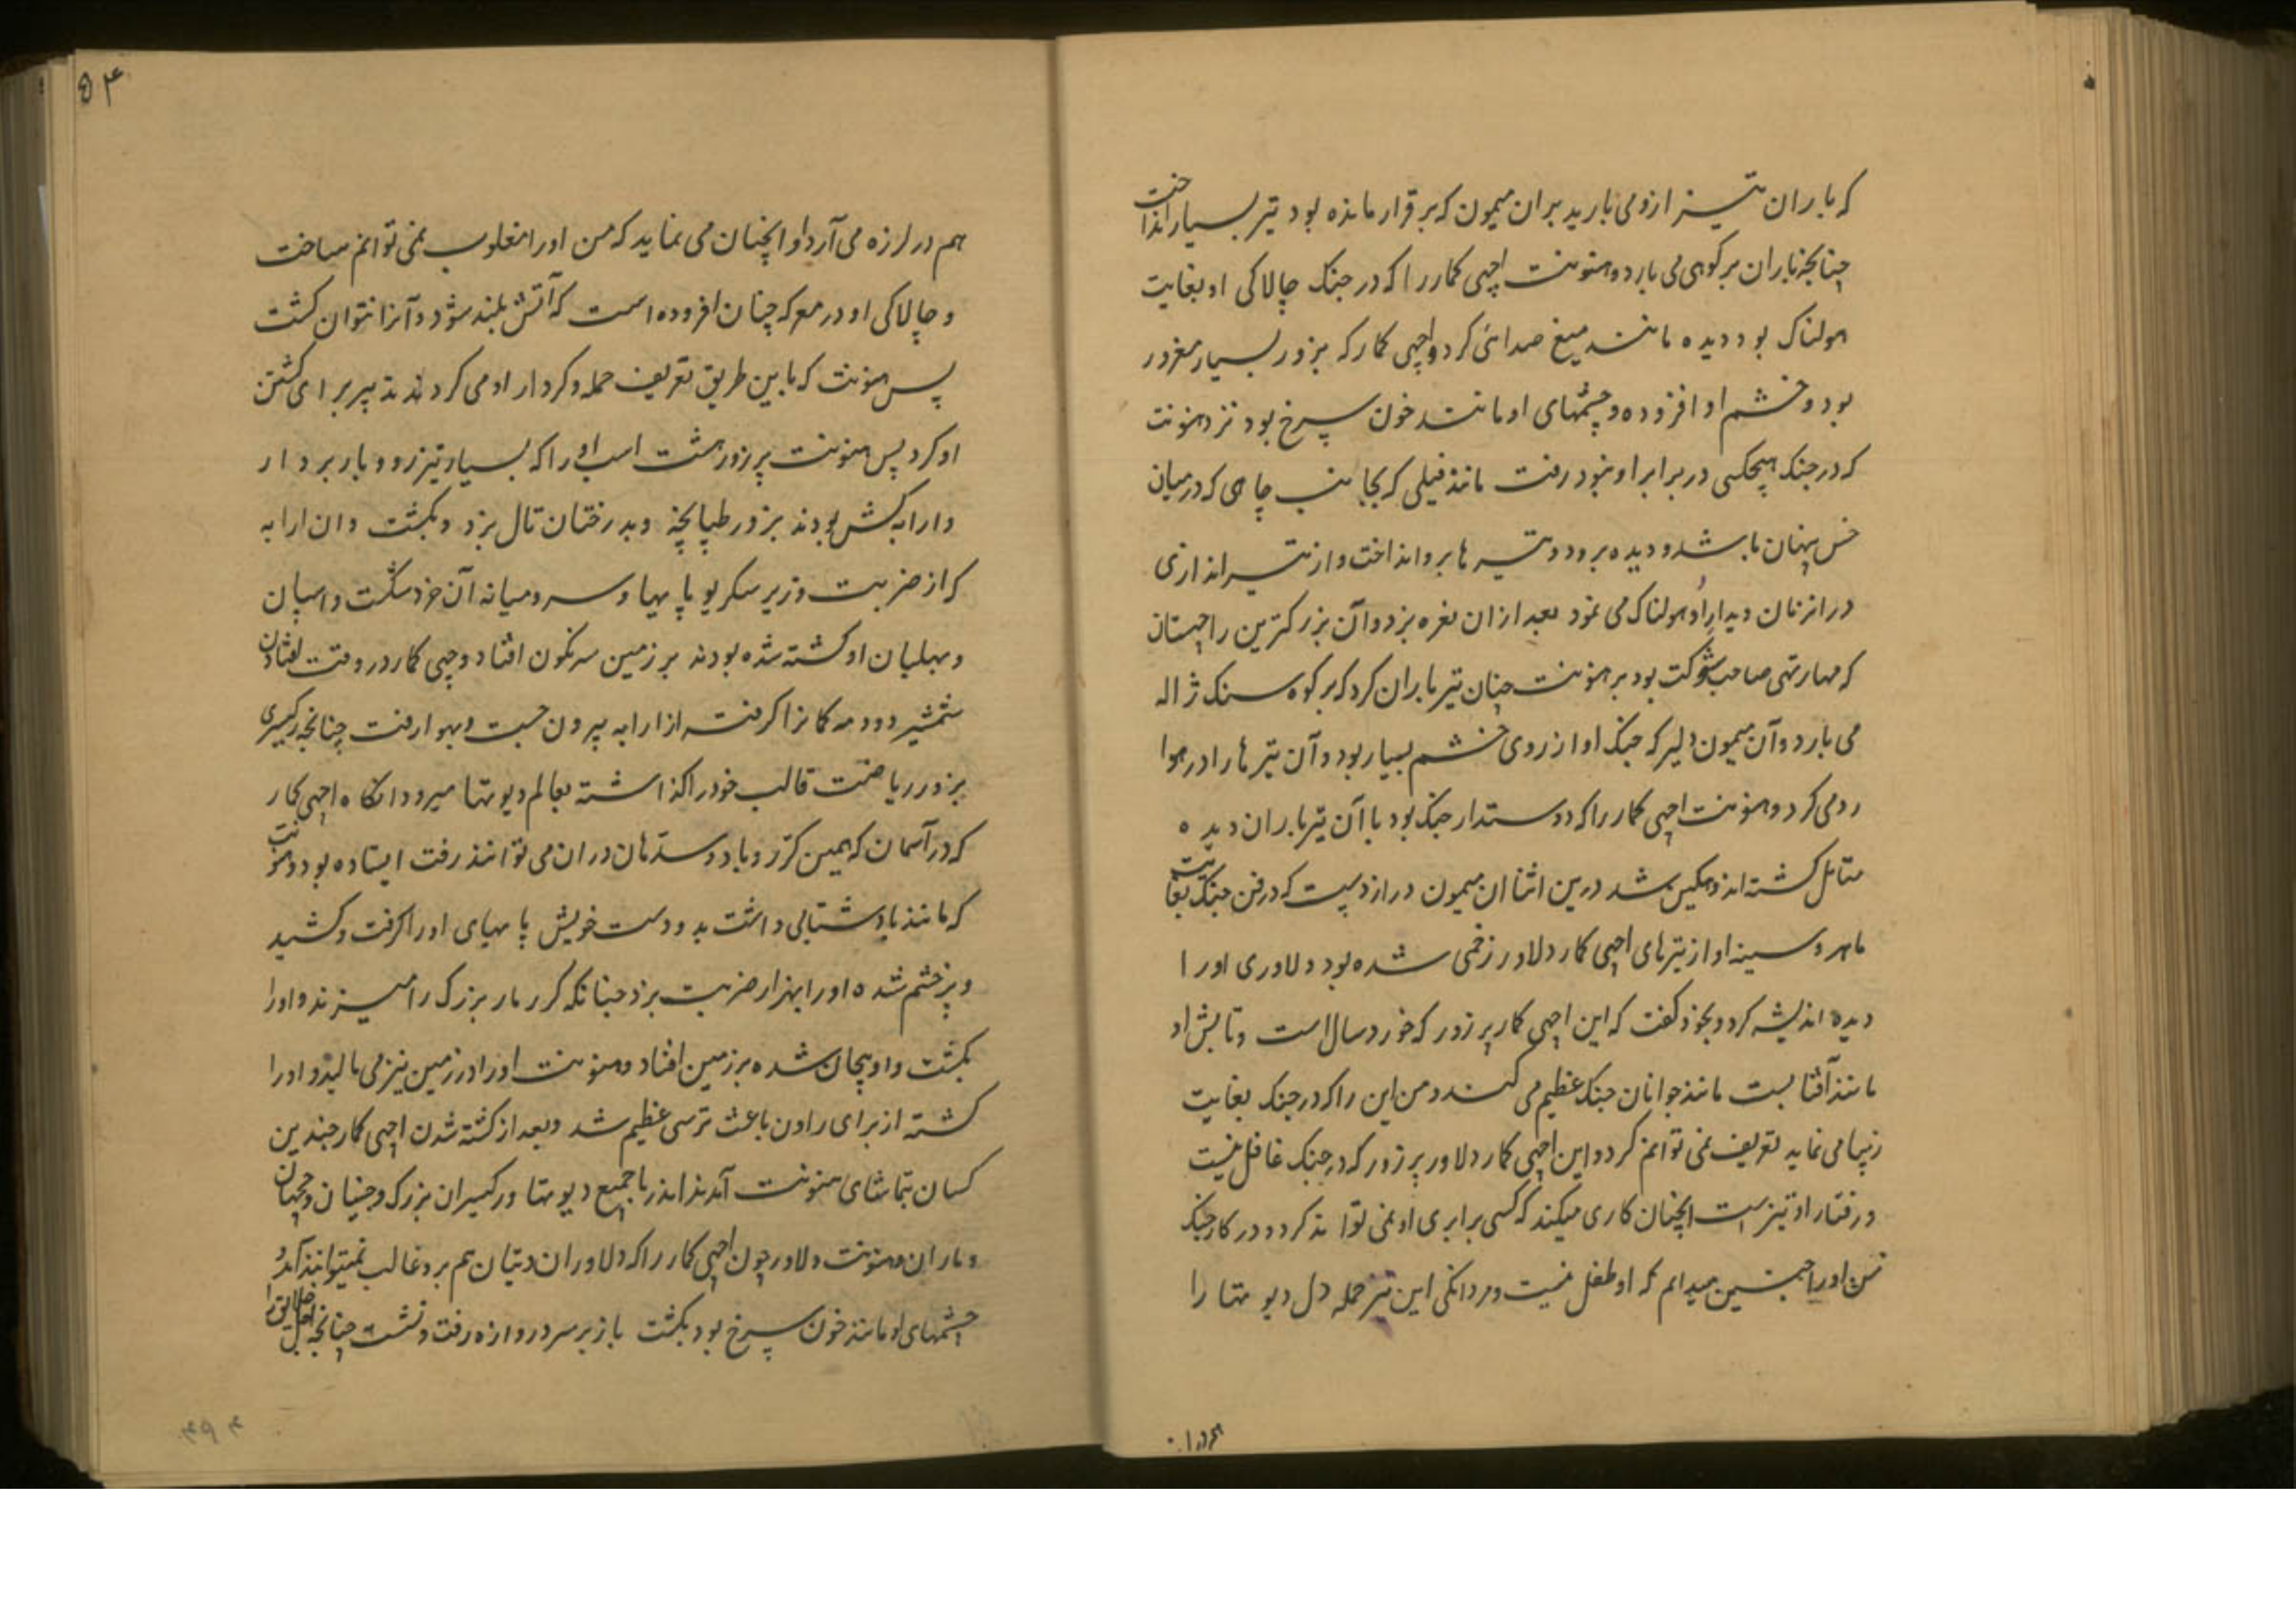 که باران تیز ازو می بارید بران میمون که برقرار مانده بود تیر بسیار انداخت
چنانچه باران بر کوهی می بارد و هنونت اچهی کمار را که در جنک چالاکی او بغایت
هولناک بود دیده مانند میغ صدائی کرد و اچهی کمار که بزور بسیار مغرور
بود و خشم او افزوده و چشمهای او مانند خون سرخ بود نزد هنونت
که در جنک هیچکسی در برابر او نبود رفت مانند فیلی که بجانب چاهی که درمیان
خس پنهان باشد و دیده برود و تیرها برو انداخت و از تیر اندازی
در انزمان دیدار او هولناک می نمود بعد ازان نعره بزد و آن بزرکترین راچهسان
که مهارتهی صاحب شوکت بود بر هنونت چنان تیر باران کرد که بر کوه سنک ژاله
می بارد و آن میمون دلیر که جنک او از روی خشم بسیار بود و آن تیرها را در هوا
رد می کرد و هنونت اچهی کمار را که دوستدار جنک بود با آن تیر باران دیده
متامل کشته اندوهکین شد درین اثنا ان میمون دراز دست که در فن جنک بغایت
ماهر و سینه او از تیرهای اچهی کمار دلاور زخمی شده بود دلاوری او را
دیده اندیشه کرد و بخود کفت که این اچهی کمار پر زور که خورد سال است و تابش او
مانند آفتابست مانند جوانان جنک عظیم می کند و من این را که در جنک بغایت
زیبا می نماید تعریف نمی توانم کرد و این اچهی کمار دلاور پر زور که در جنک غافل نیست
و رفتار او تیز است انچنان کاری میکند که کسی برابری او نمی تواند کرد و در کار جنک
من او را چنین میدانم که او طفل نیست و مردانکی این تیز حمله دل دیوتها را
۵۴
هم در لرزه می آرد او انچنان می نماید که من او را مغلوب نمی توانم ساخت
و چالاکی او در معرکه چنان افزوده است که آتش بلند شود و آنرا نتوان کشت
پس هنونت که باین طریق تعریف حمله و کردار او می کرد تدبیر برای کشتن
او کرد پس هنونت پر زور هشت اسپ او را که بسیار تیز رو و بار بردار
و ارابه کش بودند بزور طپانچه و بدرختان تال بزد و بکشت و ان ارابه
که از ضربت وزیر سکریو پاپهیا و سر و میانه آن خرد شکست و اسپان
و بهلبان او کشته شده بودند بر زمین سرنکون افتاد و اچهی کمار در وقت افتادن
شمشیر و دو مه کمانرا کرفته از ارابه بیرون جست و بهوا رفت چنانچه رکهیری
بزور ریاضت قالب خود را کذاشته بعالم دیوتها میرود انکاه اچهی کمار
که در آسمان که همین کرر و باد و سدهان دران می توانند رفت ایستاده بود و هنونت
که مانند باد شتابی داشت بدو دست خویش پاهای او را کرفت و کشید
و پرخشم شده او را بهزار ضربت بزد چنانکه کرر مار بزرک را میزند و او را
بکشت و او بیجان شده بر زمین افتاد و هنونت او را در زمین نیز می مالید و او را
کشته از برای راون باعث ترسی عظیم شد و بعد از کشته شدن اچهی کمار چندین
کسان بتماشای هنونت آمدند اندر با جمیع دیوتها و رکهیران بزرک و جنیان و جهان
و ماران و هنونت دلاور چون اچهی کمار را که دلاوران دیتان هم برو غالب نمیتوانند آمد و
چشمهای او مانند خون سرخ بود بکشت باز بر سر دروازه رفت و نشست چنانچه اجل خلایق را